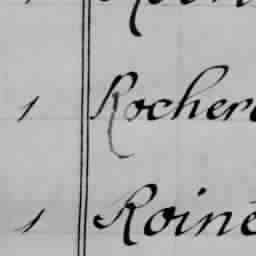 1 Rocher
1 Roine